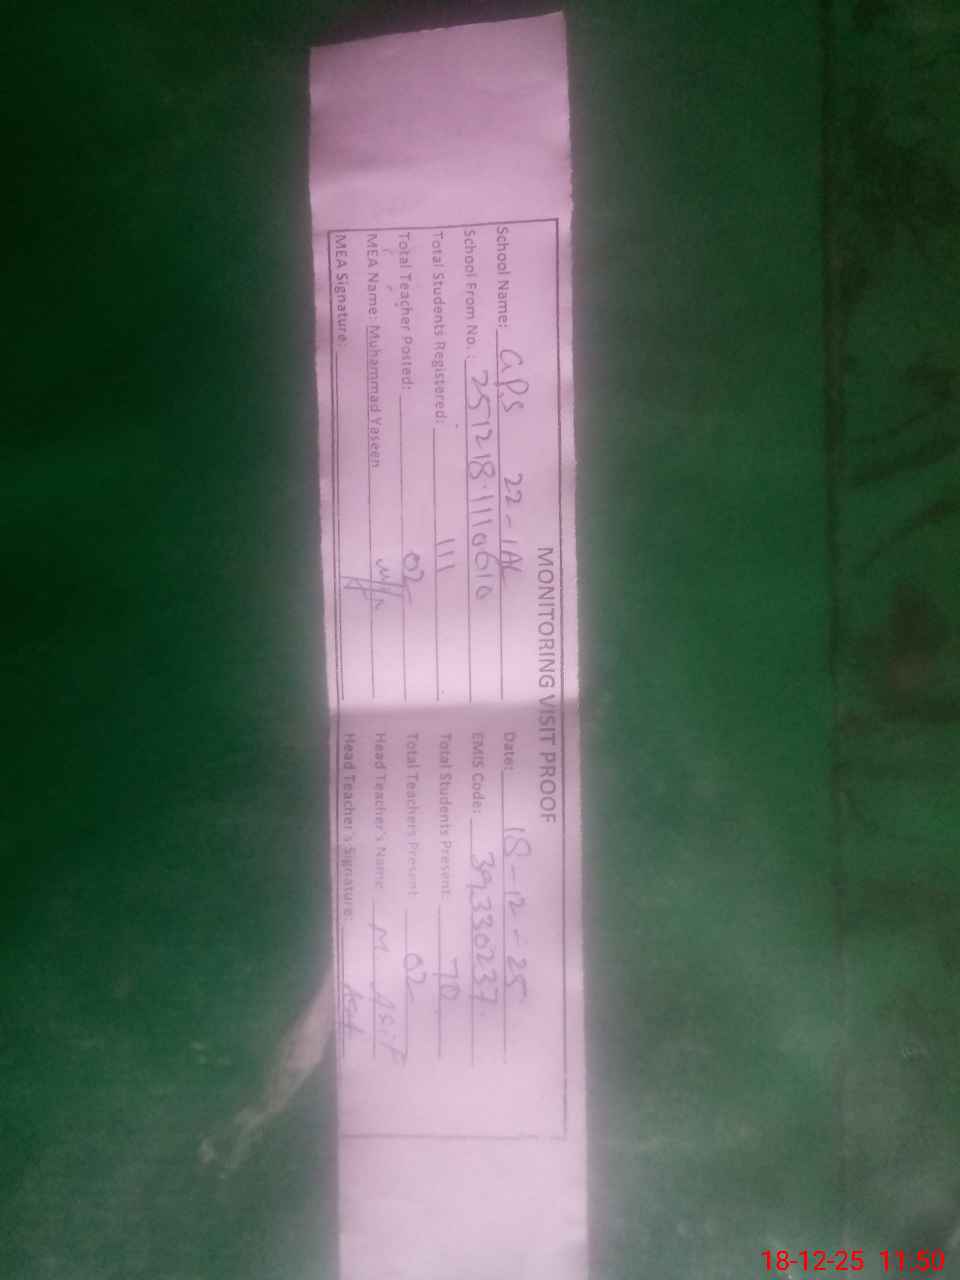 MONITORING VISIT PROOF
School Name: GPS 22-1AL Date: 18-12-25
School From No. : 251218-1110610 EMIS Code: 39330237
Total Students Registered: 111 Total Students Present: 70
Total Teacher Posted: 02 Total Teachers Present 02
MEA Name: Muhammad Yaseen Head Teacher's Name M ASIF
MEA Signature: Head Teacher's Signature: Asif
18-12-25 11:50